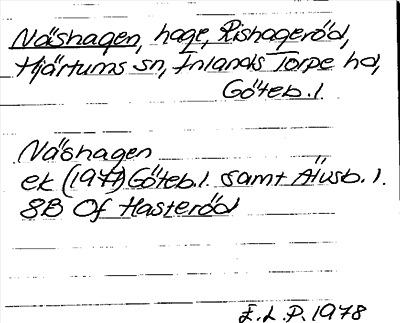 Näshagen, hage, Rishageröd,
Hjärtums sn, Inlands Torpe hd,
Göteb. l.
Näshagen
ek (1977) Göteb. l. samt Älvsb. l.
8B 0f Hasteröd
E.L.P. 1978